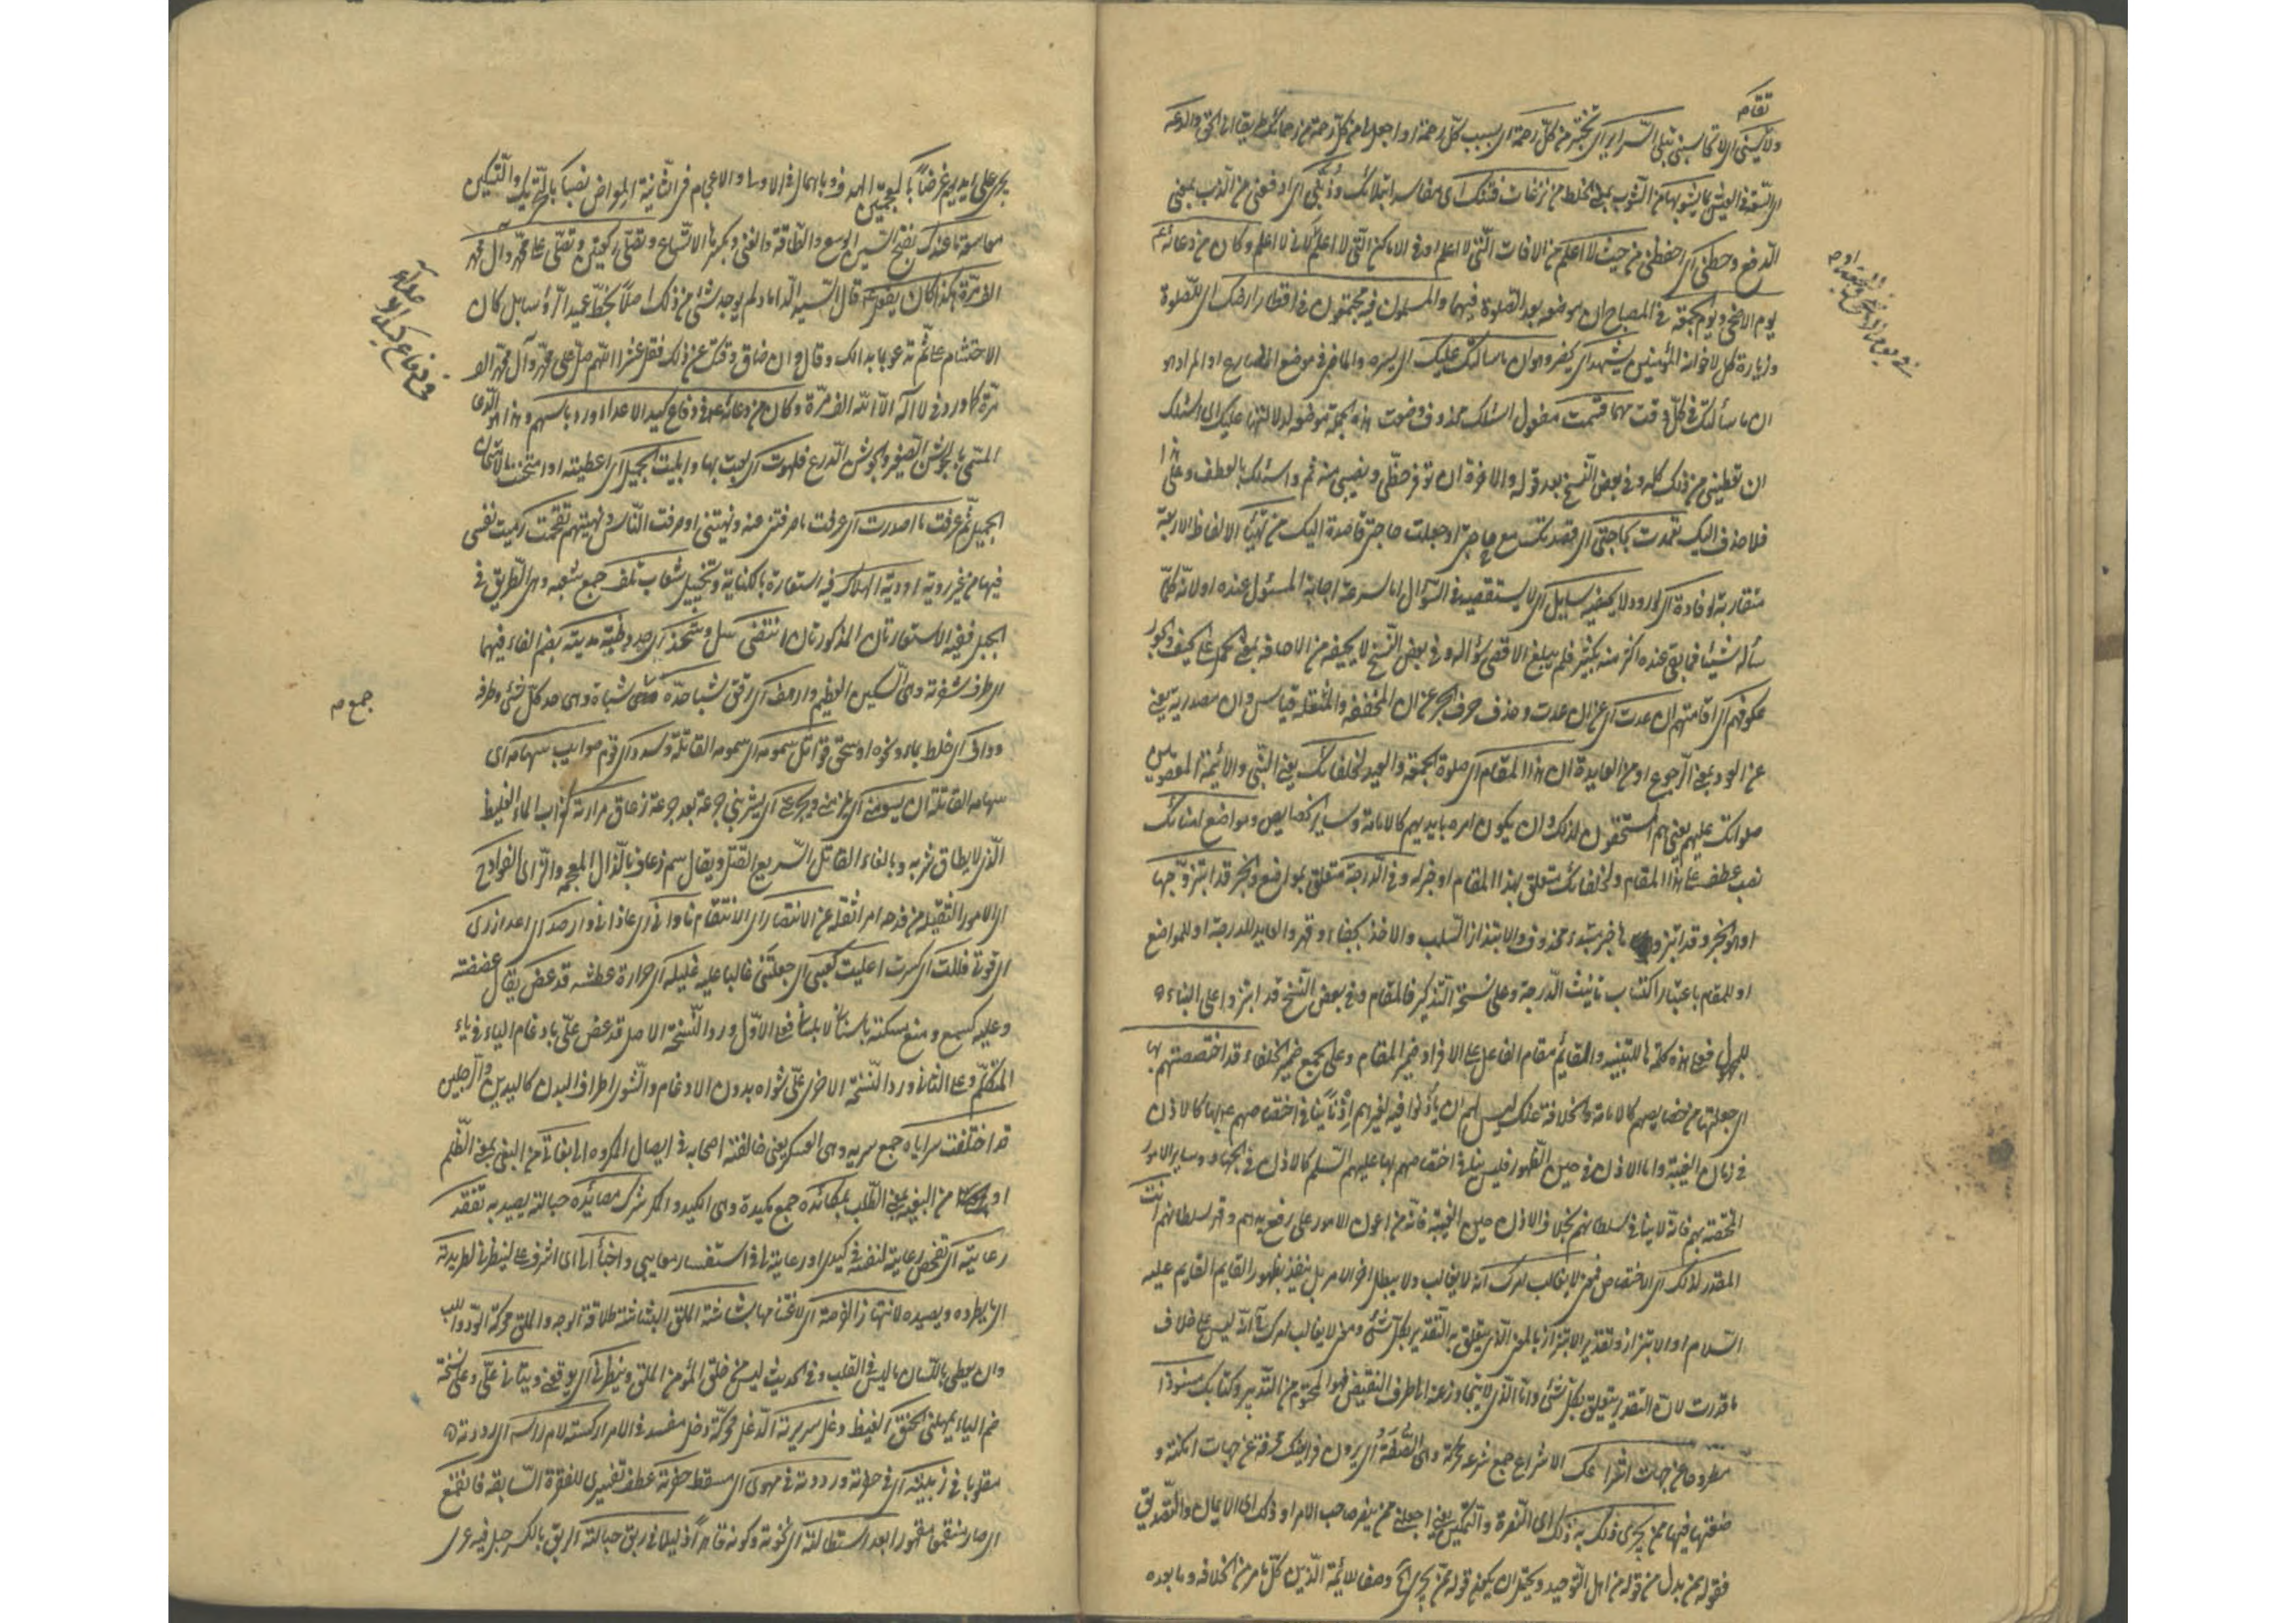 تقام
ولا تبتلني السراير اي تختبر من كل رحمة اي بسبب كل رحمة او اجعل لي من كل رحمة من رحماتك طريقا الى الحق والدعة
اي السعة في العيش مما يشوبها من الشوب بمعنى الخلط من نزغات فتنتك اي مفاسد ابتلائك وذُبّني اي ادفعني من الذب بمعنى
الدفع وحطني اي احفظني من حيث لا اعلم من الافات التي لا اعلم او في الاماكن التي لا اعلم لاني لا اعلم وكان من دعائه ع
يوم الاضحى ويوم الجمعة في المصباح ان موضعه بعد الصلوة فيهما والمسلمون فيه مجتمعون في اقطار ارضك اي للصلوة
وزيارة كل لاخوانه المؤمنين يشهد اي كفر وهوان ما سألتك عليك اي يسره والماضي في موضع المضارع او المراد هو
ان ما سألتك في كل وقت مهما قسمت مفعول اسئلك محذوف وضعت هذه الجملة موضعه لدلالتها عليه اي اسئلك
ان تعطيني من ذلك كله وفي بعض النسخ بعد قوله والاخرة ان توفر حظي ونصيبي منه ثم واسئلك بالعطف وعلى هذا
فلا حذف اليك تعمدت بحاجتي اي قصدتك مع حاجتي او جعلت حاجتي قاصدة اليك من تهيأ الالفاظ الاربعة
متقاربة لوفادة اي لورود لا يحفيه سايل اي لا يستقصيه في السؤال اما لسرعة اجابة المسئول عنده او لانه كلما
سأله شيئا فما بقي عنده اكثر منه بكثير فلم يبلغ الاقصى سؤاله وفي بعض النسخ لا يحيفه من الاحافة بمعنى الحمل على الحيف والجور
عكوفهم اي اقامتهم ان عدت اي عن ان عدت وحذف حرف الجر عن ان المخففة والمثقلة قياس وان مصدرية يعني
عن العود بمعنى الرجوع او من العايدة ان هذا المقام اي صلوة الجمعة والعيد لخلفائك يعني النبي والائمة المعصومين
صلواتك عليهم يعني هم المستحقون لذلك وان يكون امره بايديهم كالامامة وساير خصايصهم ومواضع امنائك
نصب عطف على هذا المقام ولخلفائك متعلق بهذا المقام او خبر له وفي الدرجة متعلق بمواضع والخبر قد ابتزوها
او هو الخبر وقد ابتزوها خبر مبتدء محذوف والابتزاز السلب والاخذ بجفاء وقهر والعايد للدرجة او للمواضع
او للمقام باعتبار اكتساب تانيث الدرجة وعلى نسخة التذكير فالمقام وفي بعض النسخ قد ابتزوا على البناء
للمجهول فعلى هذه كلمة ها للتنبيه والقائم مقام الفاعل على الافراد ضمير المقام وعلى الجمع ضمير الخلفاء قد اختصصتهم بها
اي جعلتها من خصايصهم كالامامة والخلافة عنك ليس لهم ان يأذنوا فيه لغيرهم اذنا ينافي اختصاصهم بها كالاذن
في زمان الغيبة واما الاذن في حين الظهور فليس ينافي اختصاصهم بها عليهم السلم كالاذن في الجهاد وساير الامور
المختصة بهم فانه لا ينافي سلطانهم بخلاف الاذن حين الغيبة فانه من اعون الامور على رفع يدهم وقهر سلطانهم انت
المقدر لذلك اي الاختصاص فمن لا يغالب امرك انه لا يغالب ولا يبطل اخر الامر بل ينفذ بظهور القايم القايم عليه
السلام او الابتزاز وتقدير الابتزاز بالمعنى الذي يتعلق به التقدير بكل شئ ومعنى لا يغالب امرك انه ليس على خلاف
ما قدرت لان التقدير يتعلق بكل شئ واما الذي لا يتجاوز عنه الى طرف النقيض فهو المحتوم من التدبير وكتابك منبوذا
مطروحا عن جهات اشراعك الاشراع جمع شرعة محركة وهي السقيفة اي يرون فرايضك محرفة عن جهات امكنة و
صفتها فيها ممن يجري ذلك به ذلك اي النصرة والتمكين يعني اجعلني ممن ينصر صاحب الامر او ذلك اي الايمان والتصديق
فقوله ممن بدل من قوله من اهل التوحيد ويحتمل ان يكون قوله ممن يجري الخ وصفا للائمة الذين كل امر من الخلافة وما بعده
في يوم الاضحى والجمعة
يجري على ايديهم غرضاً بالمعجمتين الهدف وباهمال الاولى والاعجام في الثانية المواضى نصبا بالتحريك والتسكين
ما سعة ما عندك بفتح السين الوسع والطاقة والغنى وبكسرها الاتساع وتصلي ركعتين وتصلي على محمد وآل محمد
الف مرة هكذا كان يفعل ع قال السيد الداماد لم يوجد شئ من ذلك اصلا بخط عميد الرؤسا بل كان
الاختتام على ثم تدعو بما بدا لك وقال وان ضاق وقتك عن ذلك فقل عشرا اللهم صل على محمد وآل محمد الف
مرة كما ورد في لا اله الا الله الف مرة وكان من دعائه ع في دفاع كيد الاعداء ورد باسهم وهذا هو الذي
المسمى بالجوشن الصغير والجوشن الدرع فلهوت اي لعبت بها وابليت الجميل اي اعطيته او امتحنت بالاشياء
الجميل ثم عرفت ما اصدرت اي عرفت ما صرفتني عنه ونهيتني او صرفت الناس ونهيتهم تقحمت رميت نفسي
فيها من غير روية اودية الهلاك فيه استعارة بالكناية وتخييل شعاب تلف جمع شعبة وهي الطريق في
الجبل ففيه الاستعارتان المذكورتان انتضى سل وشحذ اي حد وظبة مديته بضم الفاء فيهما
اي طرف شفرته وهي السكين العظيم وارهف اي رقق شبا حده شباة وهي حد كل شئ وطرفه
وداف اي خلط بماء ونحوه او سحق قواتل سمومه اي سمومه القاتلة وسدد اي قوم صوايب سهامه اي
سهامه القاتلة ان يسومني اي يلزمني ويجرعني اي يشربني جرعة بعد جرعة زعاق مرارته كغراب الماء الغليظ
الذي لا يطاق شربه وبالفاء القاتل السريع القتل ويقال سم ذعاف بالذال المعجمة والزاي الفوادح
اي الامور الثقيلة من فدحه امر اثقله عن الانتصار اي الانتقام ناواني اي عاداني وارصد اي اعد ازري
اي قوتي فللت اي كسرت اعليت كعبي اي جعلتني غالبا عليه غليله اي حرارة عطشه قد عض يقال عضضته
وعليه كسمع ومنع مسكته باسناني او بلساني فعلى الاول ورد النسخة الاصل قد عض علي بادغام الياء في ياء
المتكلم وعلى الثاني ورد النسخة الاخرى على شواه بدون الادغام والشوى اطراف البدن كاليدين والرجلين
قد اخلفت سراياه جمع سرية وهي العسكر يعني خالفته اصحابه في ايصال المكروه الي بغاني من البغي بمعنى الظلم
او من البغية بمعنى الطلب بمكائده جمع مكيدة وهي الكيد والمكر شرك مصائده حبالة يصيد به تفقد
رعايته اي تفحص رعاية لنفسه في كيدي او رعايته لي في استفسار معايبي واضبأ الي اي اشرف علي لينظر في لطريدته
التي يطرده ويصيده لانتهاز الفرصة اي لاغتنامها بشاشة الملق البشاشة طلاقة الوجه والملق محركة التودد للب
وان يعطى باللسان ما ليس في القلب وفي الحديث ليس من خلق المؤمن الملق وينظرني اي يوقعني ويتأنى علي وعلى نسخة
ضم الياء يمهلني الحنق الغيظ دغل سريرته الدغل محركة دخل مفسد في الامر اركسته لام راسه اي رددته
مقلوبا في زبيته اي في حفرته ورددته في مهوى اي مسقط حفرته عطف تفسيري للفقرة السابقة فانقمع
اي صار منقمعا مقهورا بعد استطالته اي نخوته وكونه قاهرا ذليلا في ربق حبالته الربق بالكسر حبل فيه عرى
في دفاع كيد الاعداء
جمع م